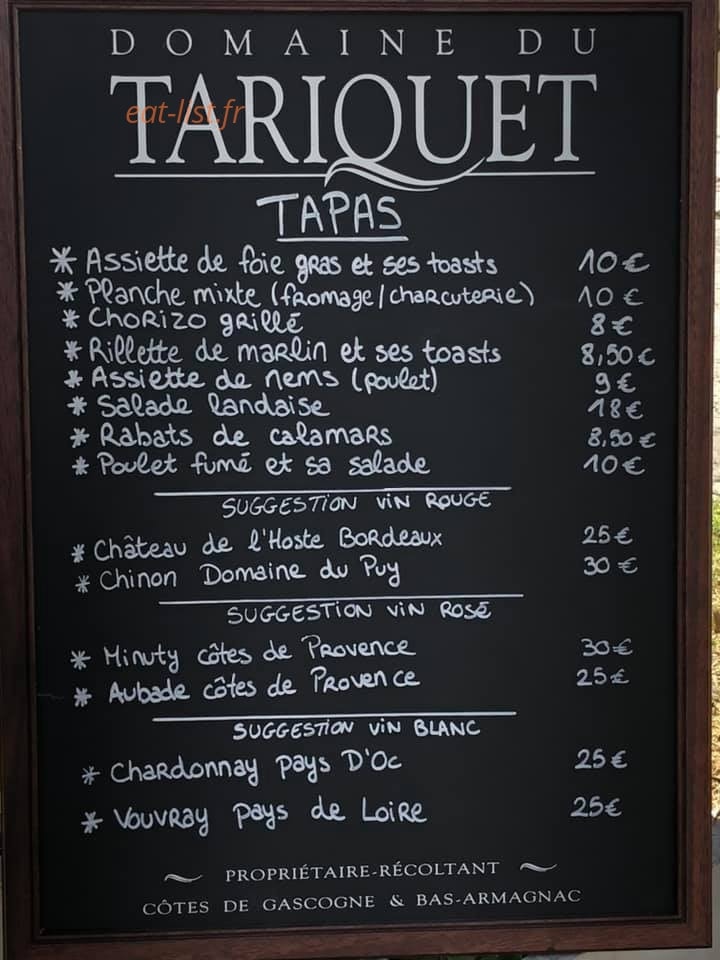 DOMAINE DU
TARIQUET
eat-list.fr
TAPAS
* Assiette de foie gras et ses toasts 10€
* Planche mixte (fromage/charcuterie) 10€
* Chorizo grillé 8€
* Rillette de marlin et ses toasts 8,50€
* Assiette de nems (poulet) 9€
* Salade landaise 18€
* Rabats de calamars 8,50€
* Poulet fumé et sa salade 10€
SUGGESTION VIN ROUGE
* Château de l'Hoste Bordeaux 25€
* Chinon Domaine du Puy 30€
SUGGESTION VIN ROSÉ
* Minuty côtes de Provence 30€
* Aubade côtes de Provence 25€
SUGGESTION VIN BLANC
* Chardonnay pays D'Oc 25€
* Vouvray pays de Loire 25€
PROPRIÉTAIRE-RÉCOLTANT
CÔTES DE GASCOGNE & BAS-ARMAGNAC